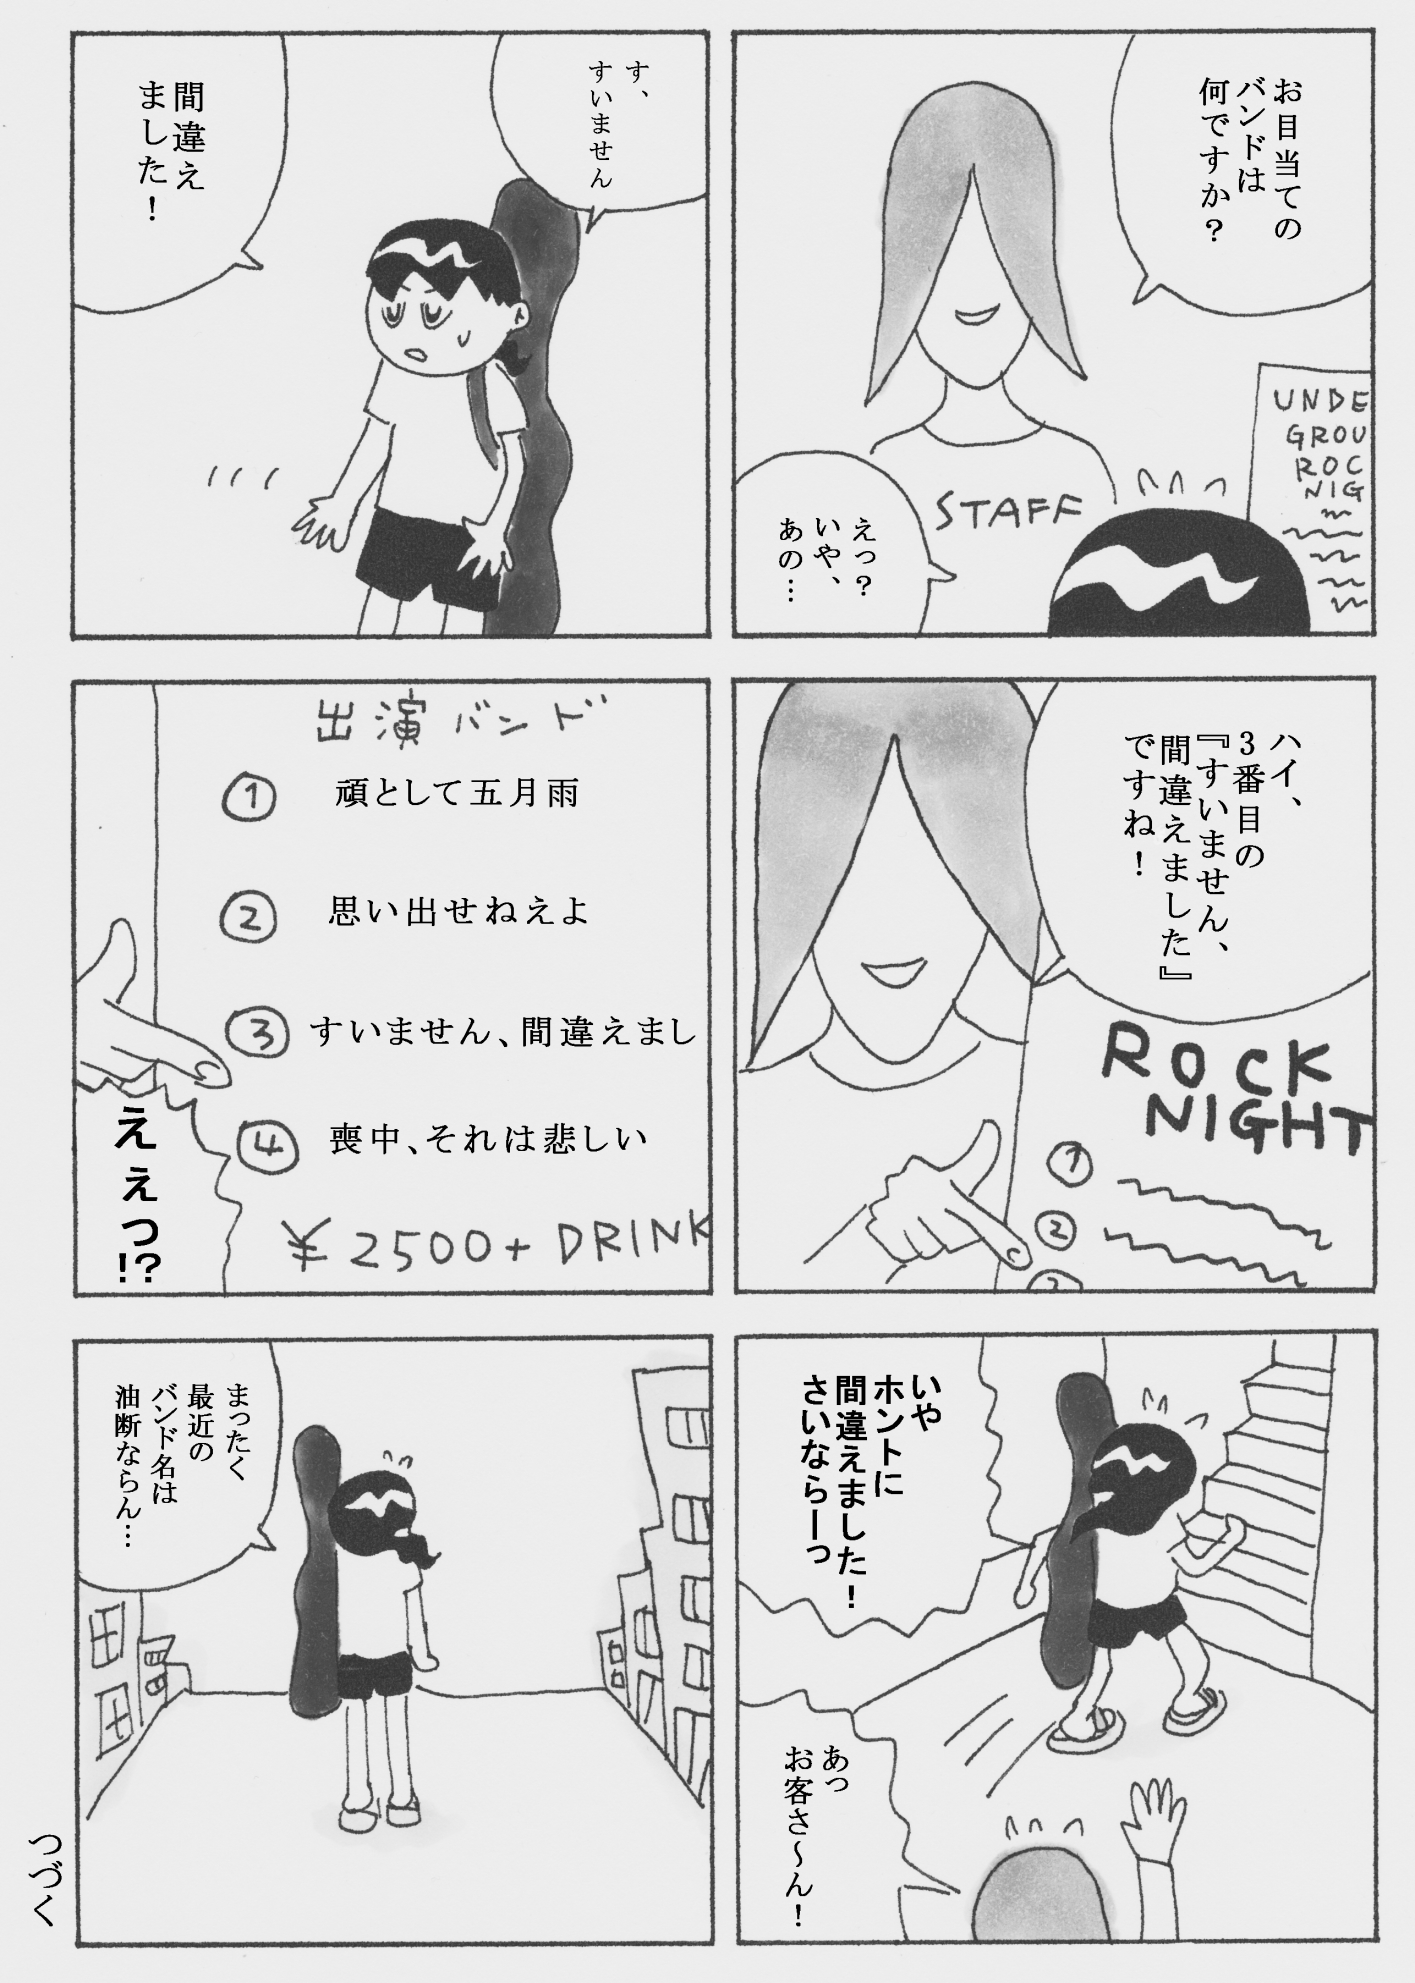 お目当ての
バンドは
何ですか？
STAFF
UNDE
GROU
ROC
NIG
えっ？
いや、
あの…
す、
すいません
間違え
ました！
ハイ、
3番目の
『すいません、
間違えました』
ですね！
ROCK
NIGHT
①
②
③
出演バンド
① 頑として五月雨
② 思い出せねえよ
③ すいません、間違えまし
④ 喪中、それは悲しい
¥2500+DRINK
えぇっ!?
いや
ホントに
間違えました！
さいならーっ
あっ
お客さ～ん！
まったく
最近の
バンド名は
油断ならん…
つづく